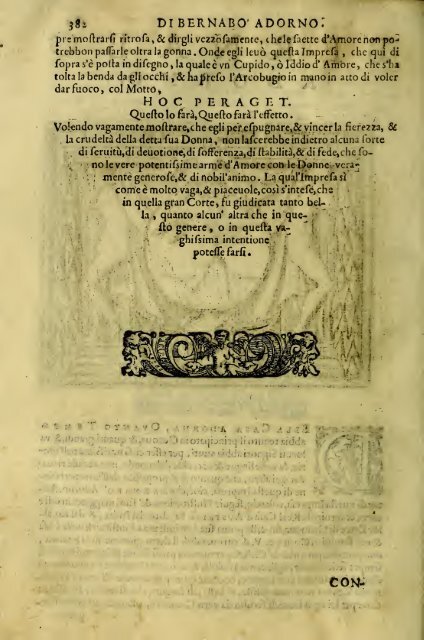 382 DI BERNABO' ADORNO.
pre mostrarsi ritrosa, & dirgli vezzosamente, che le saette d'Amore non po-
trebbon passarle oltra la gonna. Onde egli leuò questa Impresa, che qui di
sopra s'è posta in disegno, la quale è vn Cupido, ò Iddio d'Amore, che s'ha
tolta la benda da gli occhi, & ha preso l'Arcobugio in mano in atto di voler
dar fuoco, col Motto,
HOC PERAGET.
Questo lo farà, Questo farà l'effetto.
Volendo vagamente mostrare, che egli per espugnare, & vincer la fierezza, &
la crudeltà della detta sua Donna, non lascerebbe indietro alcuna sorte
di seruitù, di deuotione, di sofferenza, di stabilità, & di fede, che so-
no le vere potentissime arme d'Amore con le Donne vera-
mente generose, & di nobil'animo. La qual'Impresa sì
come è molto vaga, & piaceuole, così s'intese, che
in quella gran Corte, fu giudicata tanto bel-
la, quanto alcun'altra che in que-
sto genere, o in questa va-
ghissima intentione
potesse farsi.
CON-